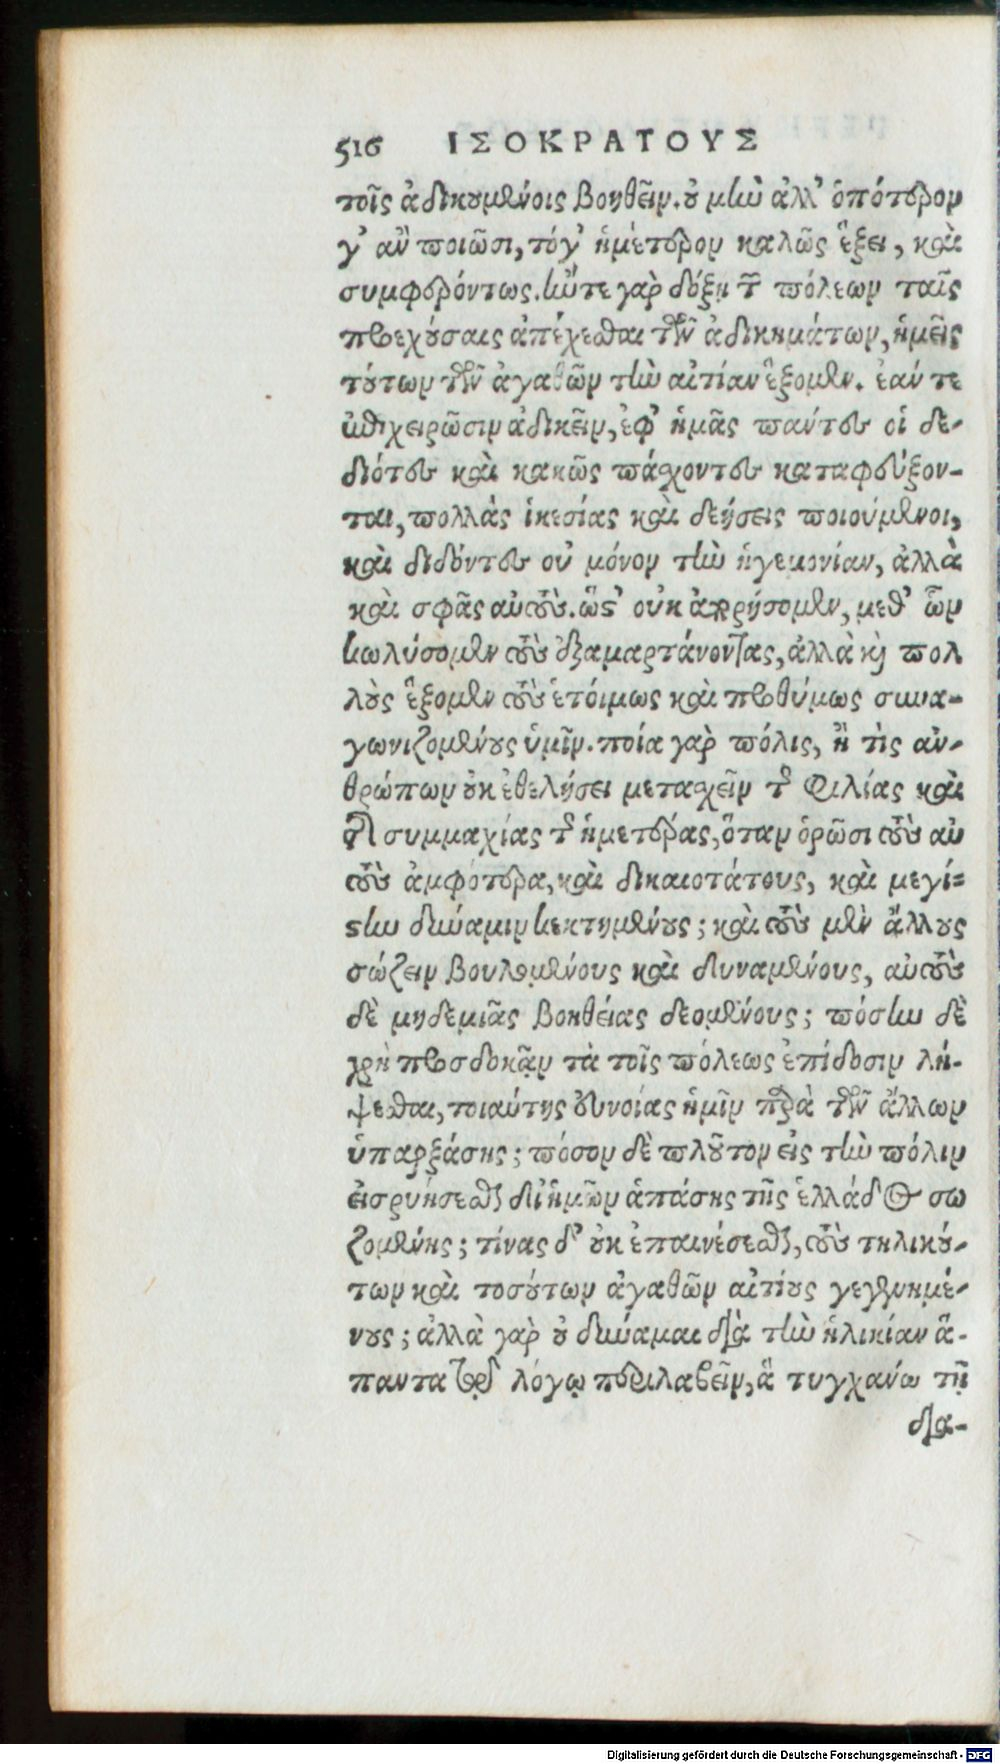 516 ΙΣΟΚΡΑΤΟΥΣ
τοῖς ἀδικουμένοις βοηθεῖν. οὐ μὴν ἀλλ' ὁπότερον
γ' ἂν ποιῶσι, τόγ' ἡμέτερον καλῶς ἕξει, καὶ
συμφερόντως. ἤν τε γὰρ δόξῃ τῶν πόλεων ταῖς
προεχούσαις ἀπέχεσθαι τῶν ἀδικημάτων, ἡμεῖς
τούτων τῶν ἀγαθῶν τὴν αἰτίαν ἕξομεν. ἐάν τε
ἐπιχειρῶσιν ἀδικεῖν, ἐφ' ἡμᾶς πάντες οἱ δε-
διότες καὶ κακῶς πάσχοντες καταφεύξον-
ται, πολλὰς ἱκεσίας καὶ δεήσεις ποιούμενοι,
καὶ διδόντες οὐ μόνον τὴν ἡγεμονίαν, ἀλλὰ
καὶ σφᾶς αὐτούς. ὥστ' οὐκ ἀπορήσομεν, μεθ' ὧν
κωλύσομεν τοὺς ἐξαμαρτάνοντας, ἀλλὰ καὶ πολ
λοὺς ἕξομεν τοὺς ἑτοίμως καὶ προθύμως συνα-
γωνιζομένους ὑμῖν. ποία γὰρ πόλις, ἢ τὶς ἀν-
θρώπων οὐκ ἐθελήσει μετασχεῖν τῆς φιλίας καὶ
τῆς συμμαχίας τῆς ἡμετέρας, ὅταν ὁρῶσι τοὺς αὐ
τοὺς ἀμφότερα, καὶ δικαιοτάτους, καὶ μεγί-
στην δύναμιν κεκτημένους; καὶ τοὺς μὲν ἄλλους
σώζειν βουλομένους καὶ δυναμένους, αὐτοὺς
δὲ μηδεμιᾶς βοηθείας δεομένους; πόσην δὲ
χρὴ προσδοκᾷν τὰ τοῖς πόλεως ἐπίδοσιν λή-
ψεσθαι, τοιαύτης εὐνοίας ἡμῖν παρὰ τῶν ἄλλων
ὑπαρξάσης; πόσον δὲ πλοῦτον εἰς τὴν πόλιν
εἰσρυήσεσθαι δι' ἡμῶν ἁπάσης τῆς ἑλλάδος σω
ζομένης; τίνας δ' οὐκ ἐπαινέσεσθαι, τοὺς τηλικού-
των καὶ τοσούτων ἀγαθῶν αἰτίους γεγενημέ-
νους; ἀλλὰ γὰρ οὐ δύναμαι διὰ τὴν ἡλικίαν ἅ-
παντα τῷ λόγῳ περιλαβεῖν, ἃ τυγχάνω τῇ
δια-
Digitalisierung gefördert durch die Deutsche Forschungsgemeinschaft - DFG